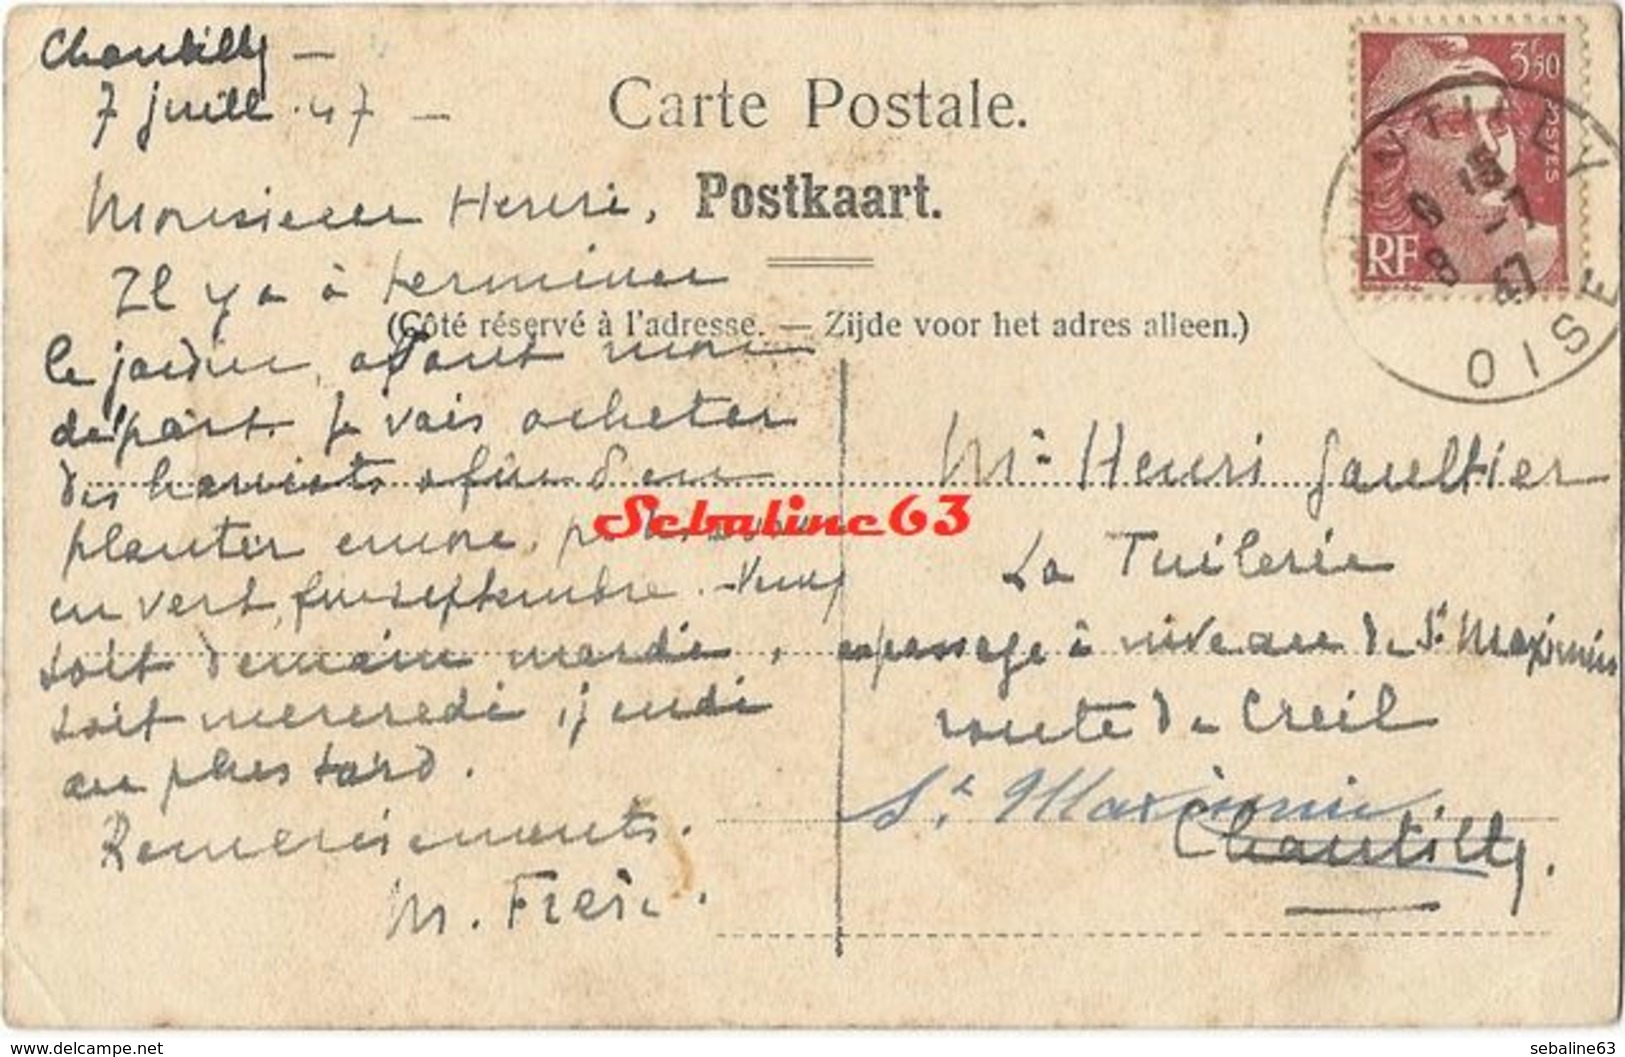 Chantilly –
7 juill. 47 –
Carte Postale.
Postkaart.
(Côté réservé à l'adresse. — Zijde voor het adres alleen.)
Monsieur Henri,
Il y a à terminer
le jardin, avant mon
départ. Je vais acheter
des haricots afin d'en
planter encore, p
en vert, fin septembre. Venez
soit demain mardi,
soit mercredi, jeudi
au plus tard.
Remerciements.
M.
3F50
POSTES
RF
CHANTILLY
9 15
8 - 7
47
OISE
Mr Henri Gaultier
La Tuilerie
au passage à niveau de St Maximin
route de Creil
St Maximin
Chantilly.
Sebaline63
delcampe.net
sebaline63